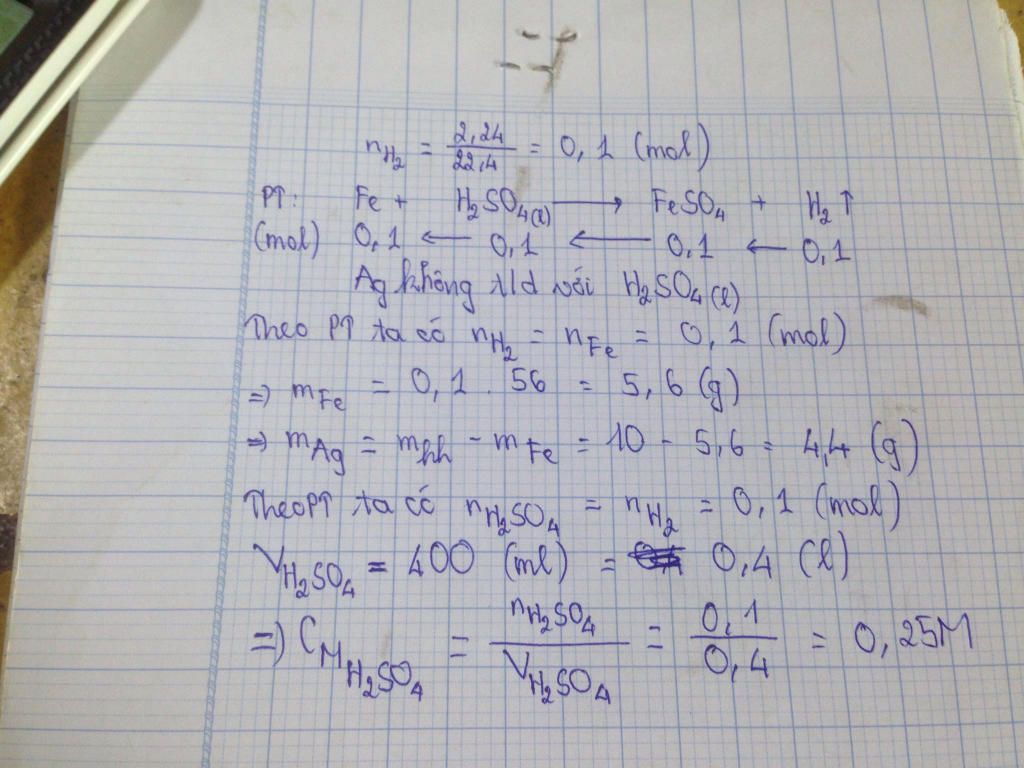 nH₂ = 2,24/22,4 = 0,1 (mol)
PT: Fe + H₂SO₄(l) ⟶ FeSO₄ + H₂↑
(mol) 0,1 ← 0,1 ← 0,1 ← 0,1
Ag không t/d với H₂SO₄(l)
Theo PT ta có nH₂ = nFe = 0,1 (mol)
=> mFe = 0,1 . 56 = 5,6 (g)
=> mAg = mhh - mFe = 10 - 5,6 = 4,4 (g)
Theo PT ta có nH₂SO₄ = nH₂ = 0,1 (mol)
VH₂SO₄ = 400 (ml) = 0,4 (l)
=> CM H₂SO₄ = nH₂SO₄/VH₂SO₄ = 0,1/0,4 = 0,25M